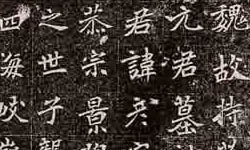 魏故持
元君墓誌
君諱
恭宗景
之世子
四海